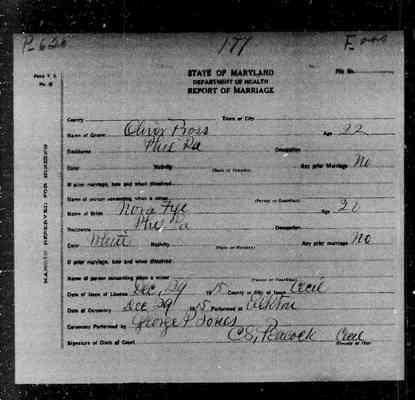 P-626 177 F
Form V. S. STATE OF MARYLAND File No.
No. DEPARTMENT OF HEALTH
REPORT OF MARRIAGE
MARGIN RESERVED FOR BINDING
County Town or City
Name of Groom Oliver Ross Age 22
Residence Phil Pa Occupation
Color Nativity (State or Country) Any prior Marriage No
If prior marriage, how and when dissolved
Name of person consenting when a minor (Parent or Guardian)
Name of Bride Nora Fye Age 21
Residence Phil Pa Occupation
Color White Nativity (State or Country) Any prior marriage No
If prior marriage, how and when dissolved
Name of person consenting when a minor (Parent or Guardian)
Date of Issue of License Dec, 29 15 County or City of Issue Cecil
Date of Ceremony Dec 29 15 Performed at Elkton
Ceremony Performed by George P. Jones
Signature of Clerk of Court C.S, Peacock Cecil